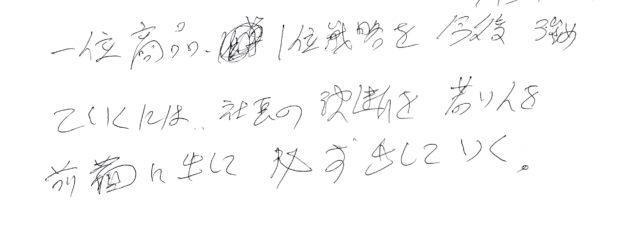 一位商品、1位戦略を今後強め
ていくには、社長の決断を若い人を
前面に出して必ず出していく。